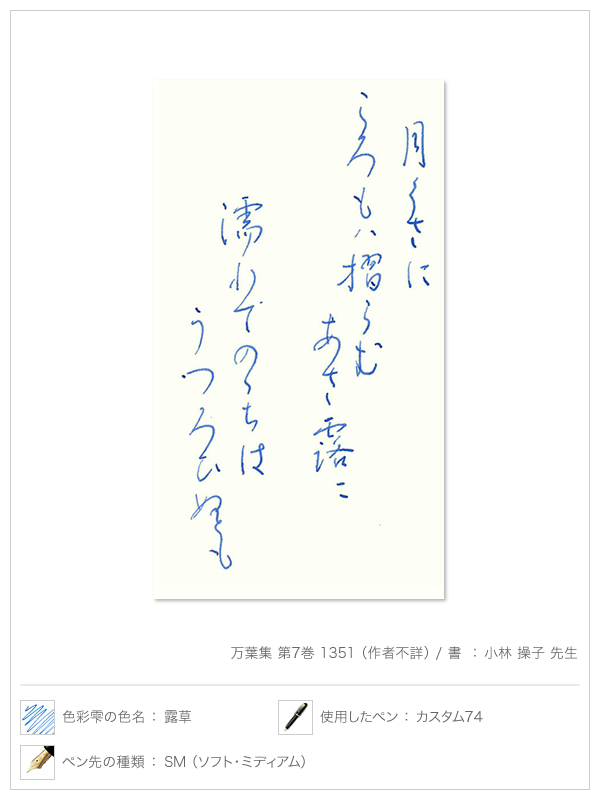 月くさに
ころもハ摺らむ
あさ露ニ
濡れてのちは
うつろひぬとも
万葉集 第7巻 1351 (作者不詳) / 書 : 小林 操子 先生
色彩雫の色名 : 露草
使用したペン : カスタム74
ペン先の種類 : SM (ソフト・ミディアム)